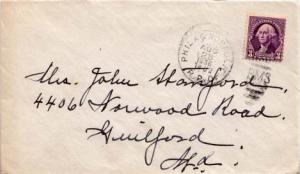 Mrs. John Stanford.
4406 Norwood Road.
Guilford
Md.